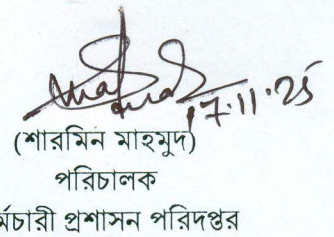 17.11.25
(শারমিন মাহমুদ)
পরিচালক
র্মচারী প্রশাসন পরিদপ্তর